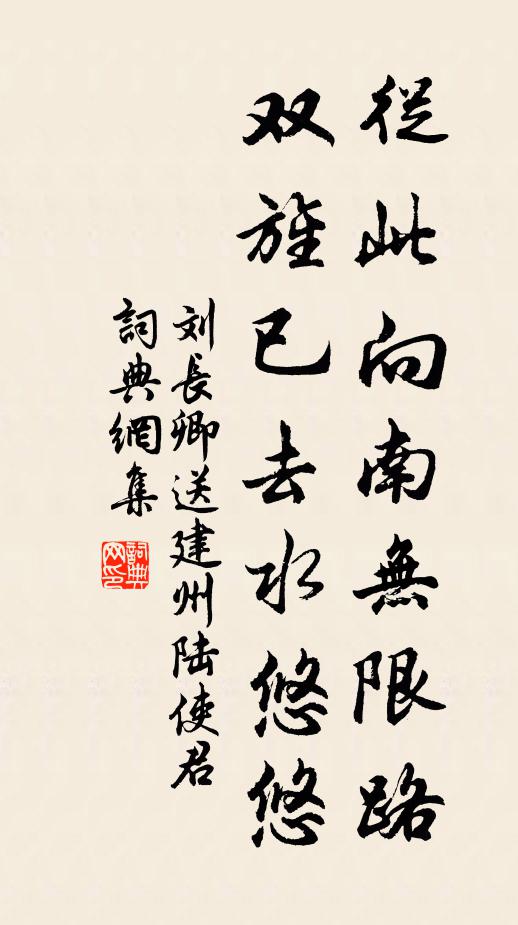 從此向南無限路
双旌已去水悠悠
刘長卿送建州陆使君
詞典網集
詞典
网印